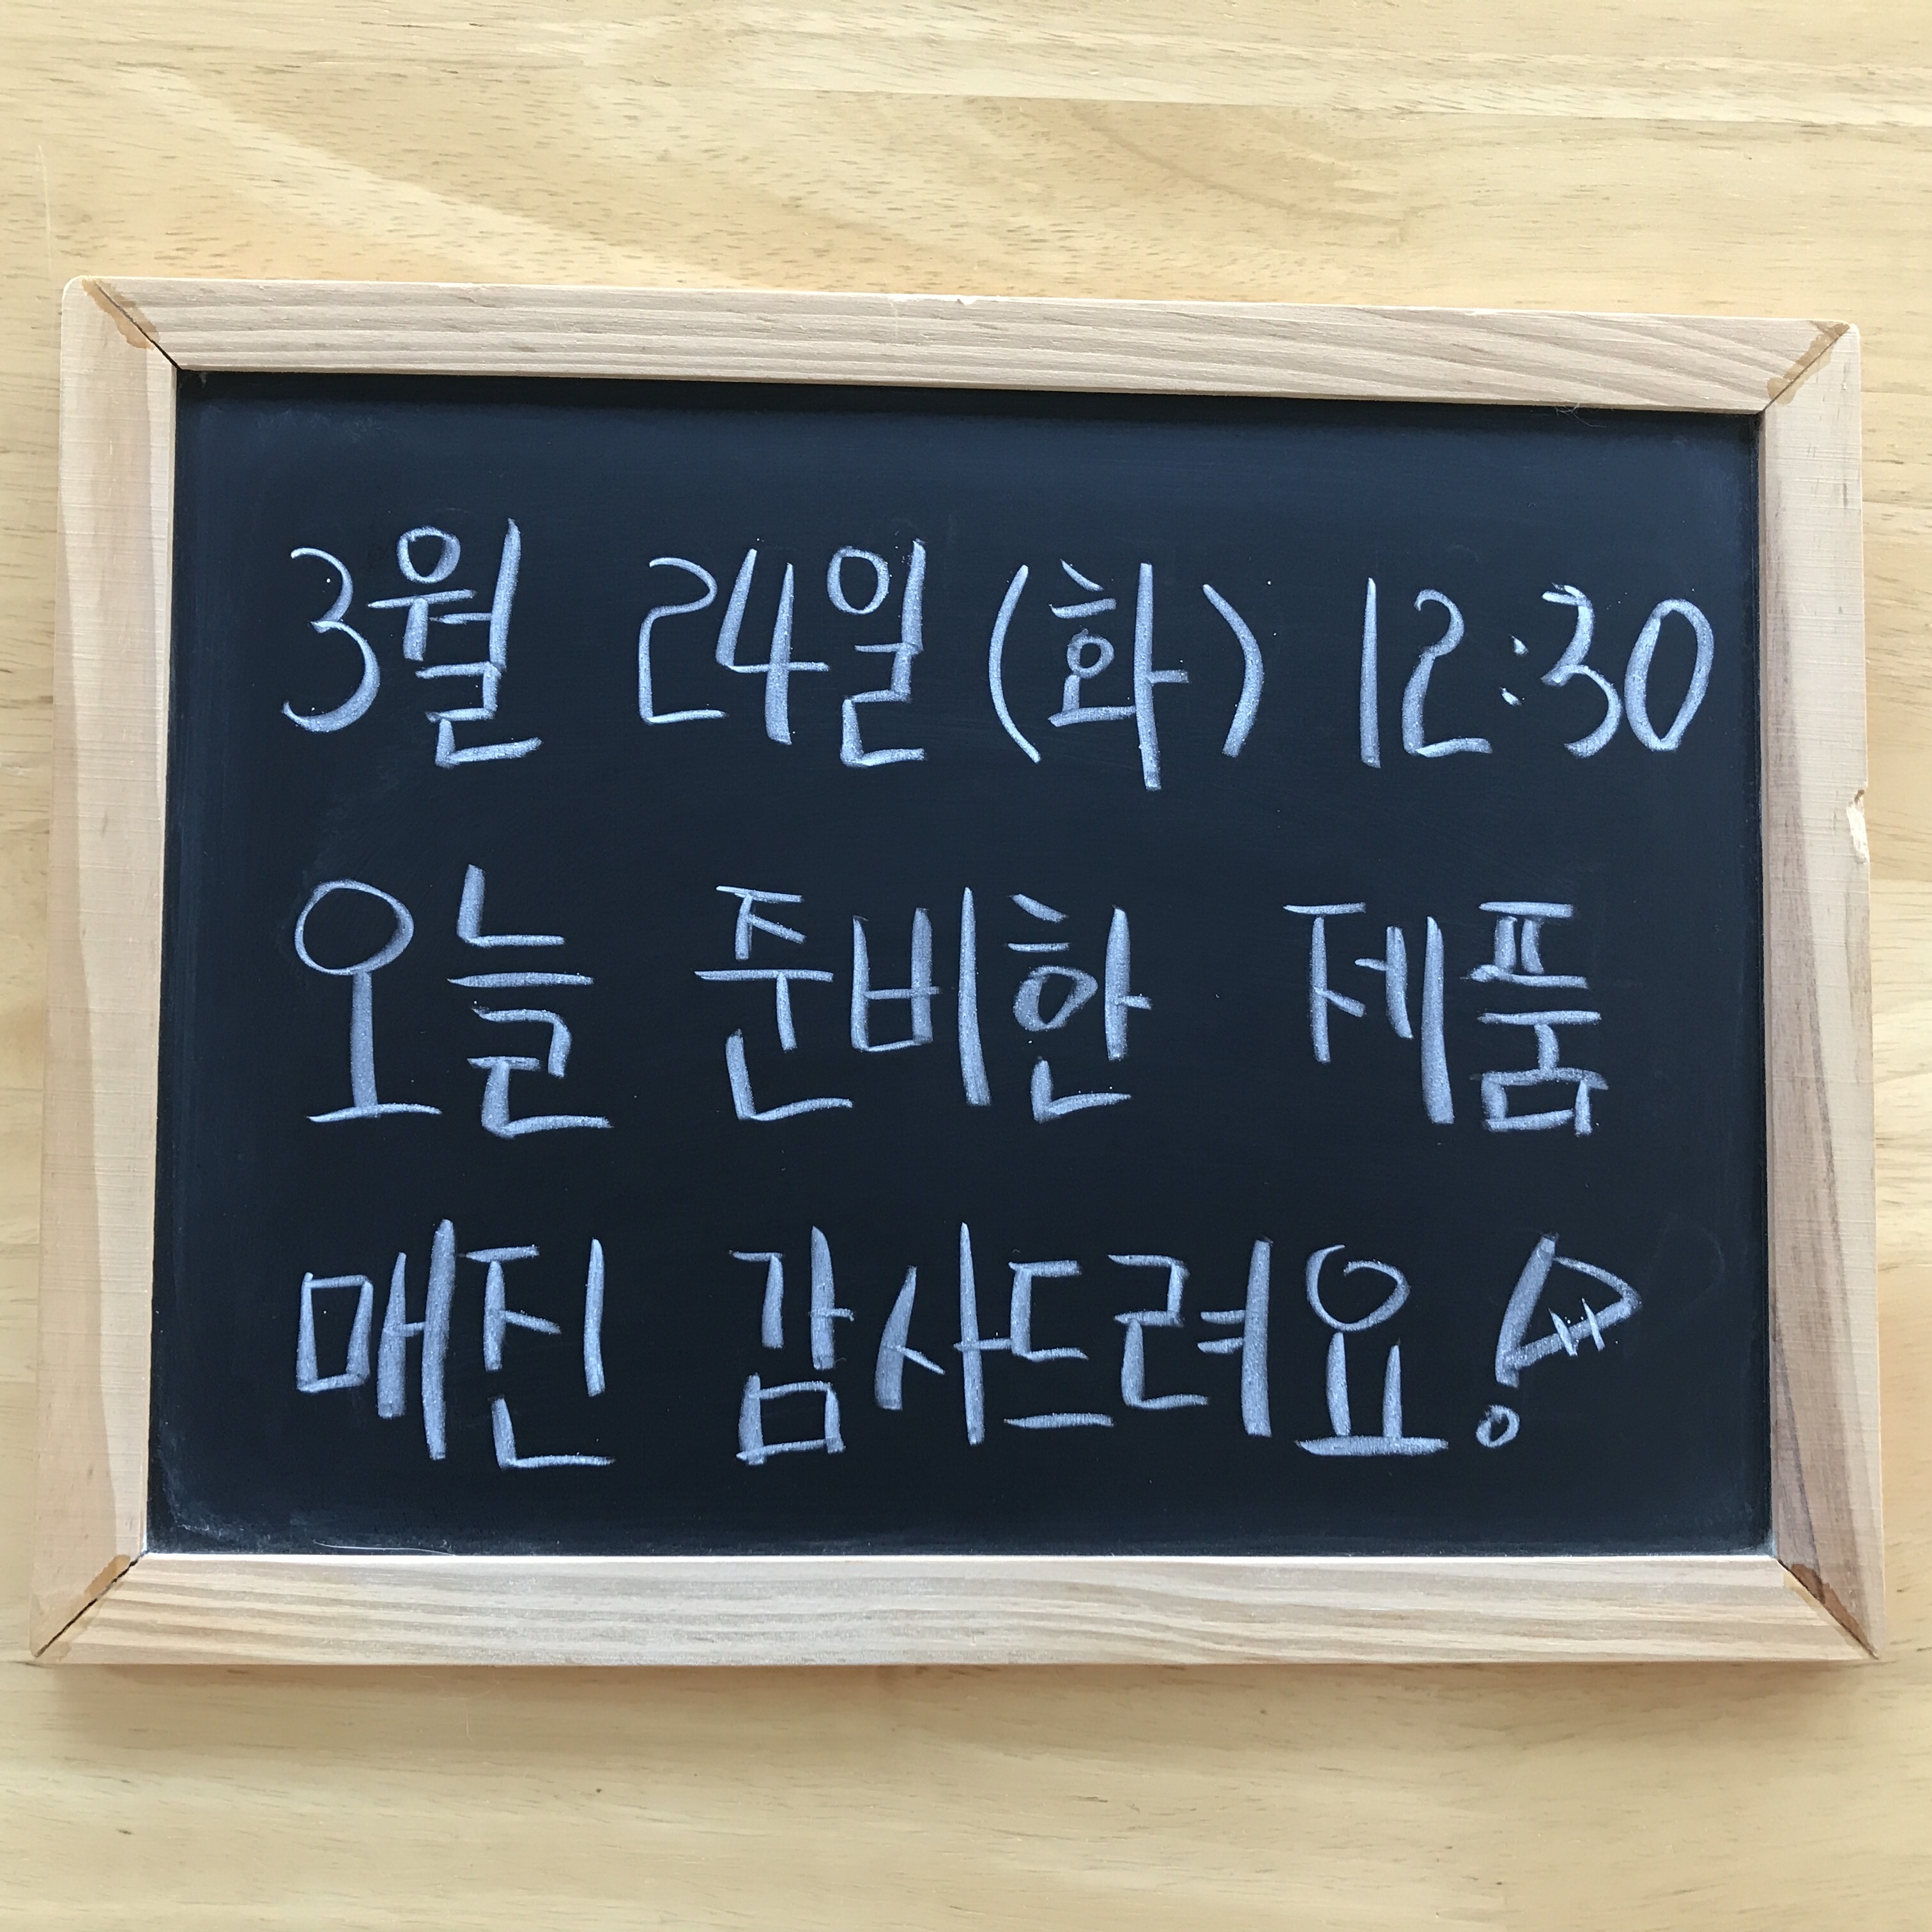 3월 24일(화) 12:30
오늘 준비한 제품
매진 감사드려요!